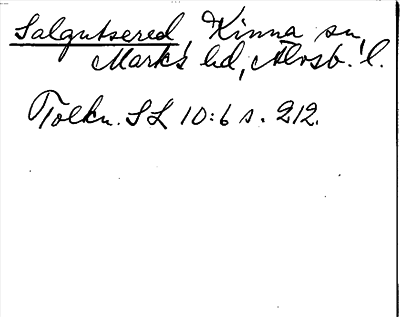 Salgutsered, Kinna sn,
Marks hd, Älvsb. l.
Tolkn. SL 10:6 s. 212.